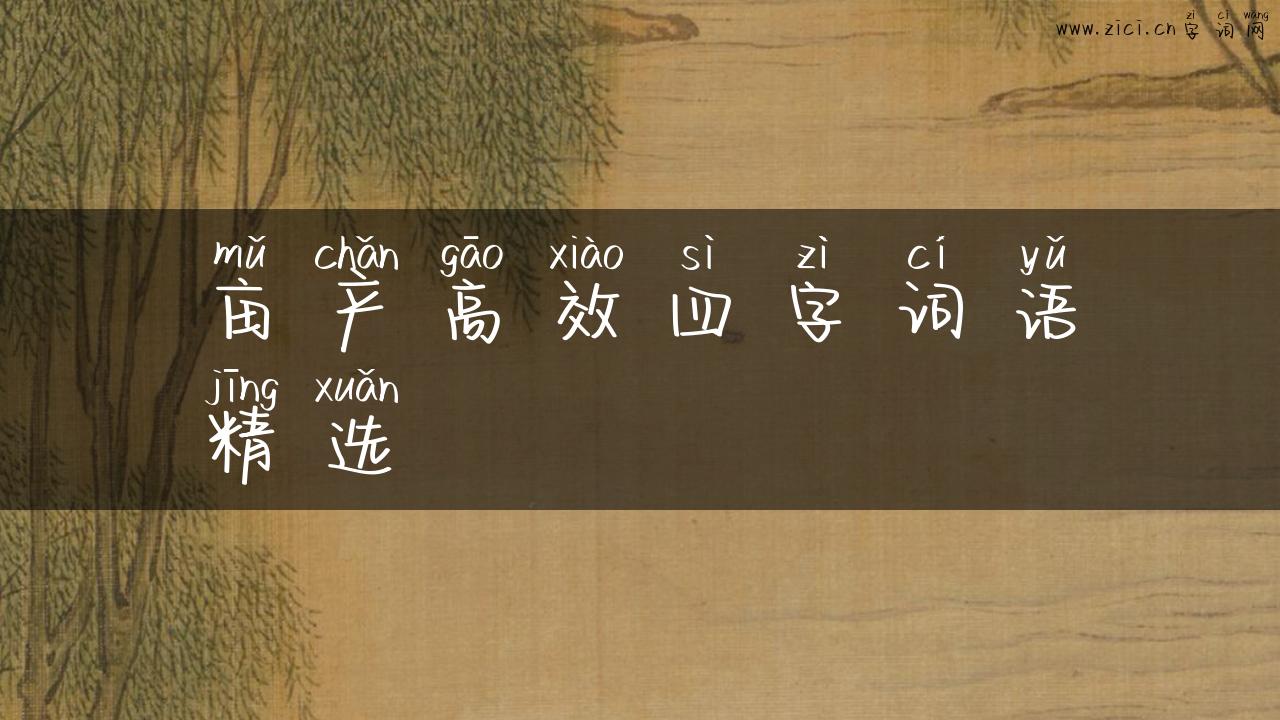 zì cí wǎng
www.zici.cn字词网
mǔ chǎn gāo xiào sì zì cí yǔ
亩产高效四字词语
jīng xuǎn
精选